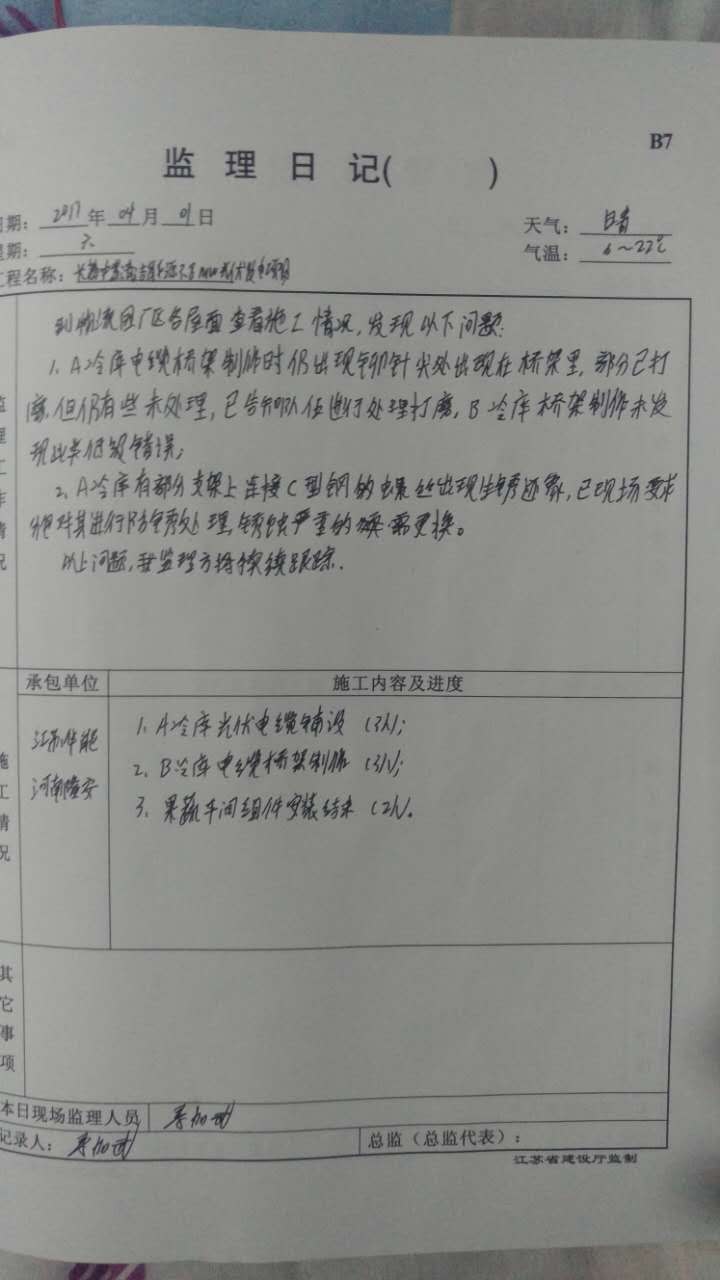 B7
监 理 日 记( )
日期: 2017 年 04 月 01 日
天气: 晴
星期: 六
气温: 6～22℃
工程名称: 光伏发电项目
到物流园厂区各屋面查看施工情况，发现以下问题:
1、A冷库电缆桥架制作时仍出现铆钉尖处出现在桥架里，部分已打
磨，但仍有些未处理，已告知队伍进行处理打磨，B冷库桥架制作未发
现此类低级错误；
2、A冷库有部分支架上连接C型钢的螺丝出现生锈迹象，已现场要求
对其进行防锈处理，锈蚀严重的需更换。
以上问题，我监理方将持续跟踪.
监理工作情况
承包单位
施工内容及进度
江苏华能
河南隆安
1、A冷库光伏电缆铺设 (3人)；
2、B冷库电缆桥架制作 (3人)；
3、果蔬车间组件安装结束 (2人)。
施工情况
其它事项
本日现场监理人员
记录人:
总监（总监代表）:
江苏省建设厅监制